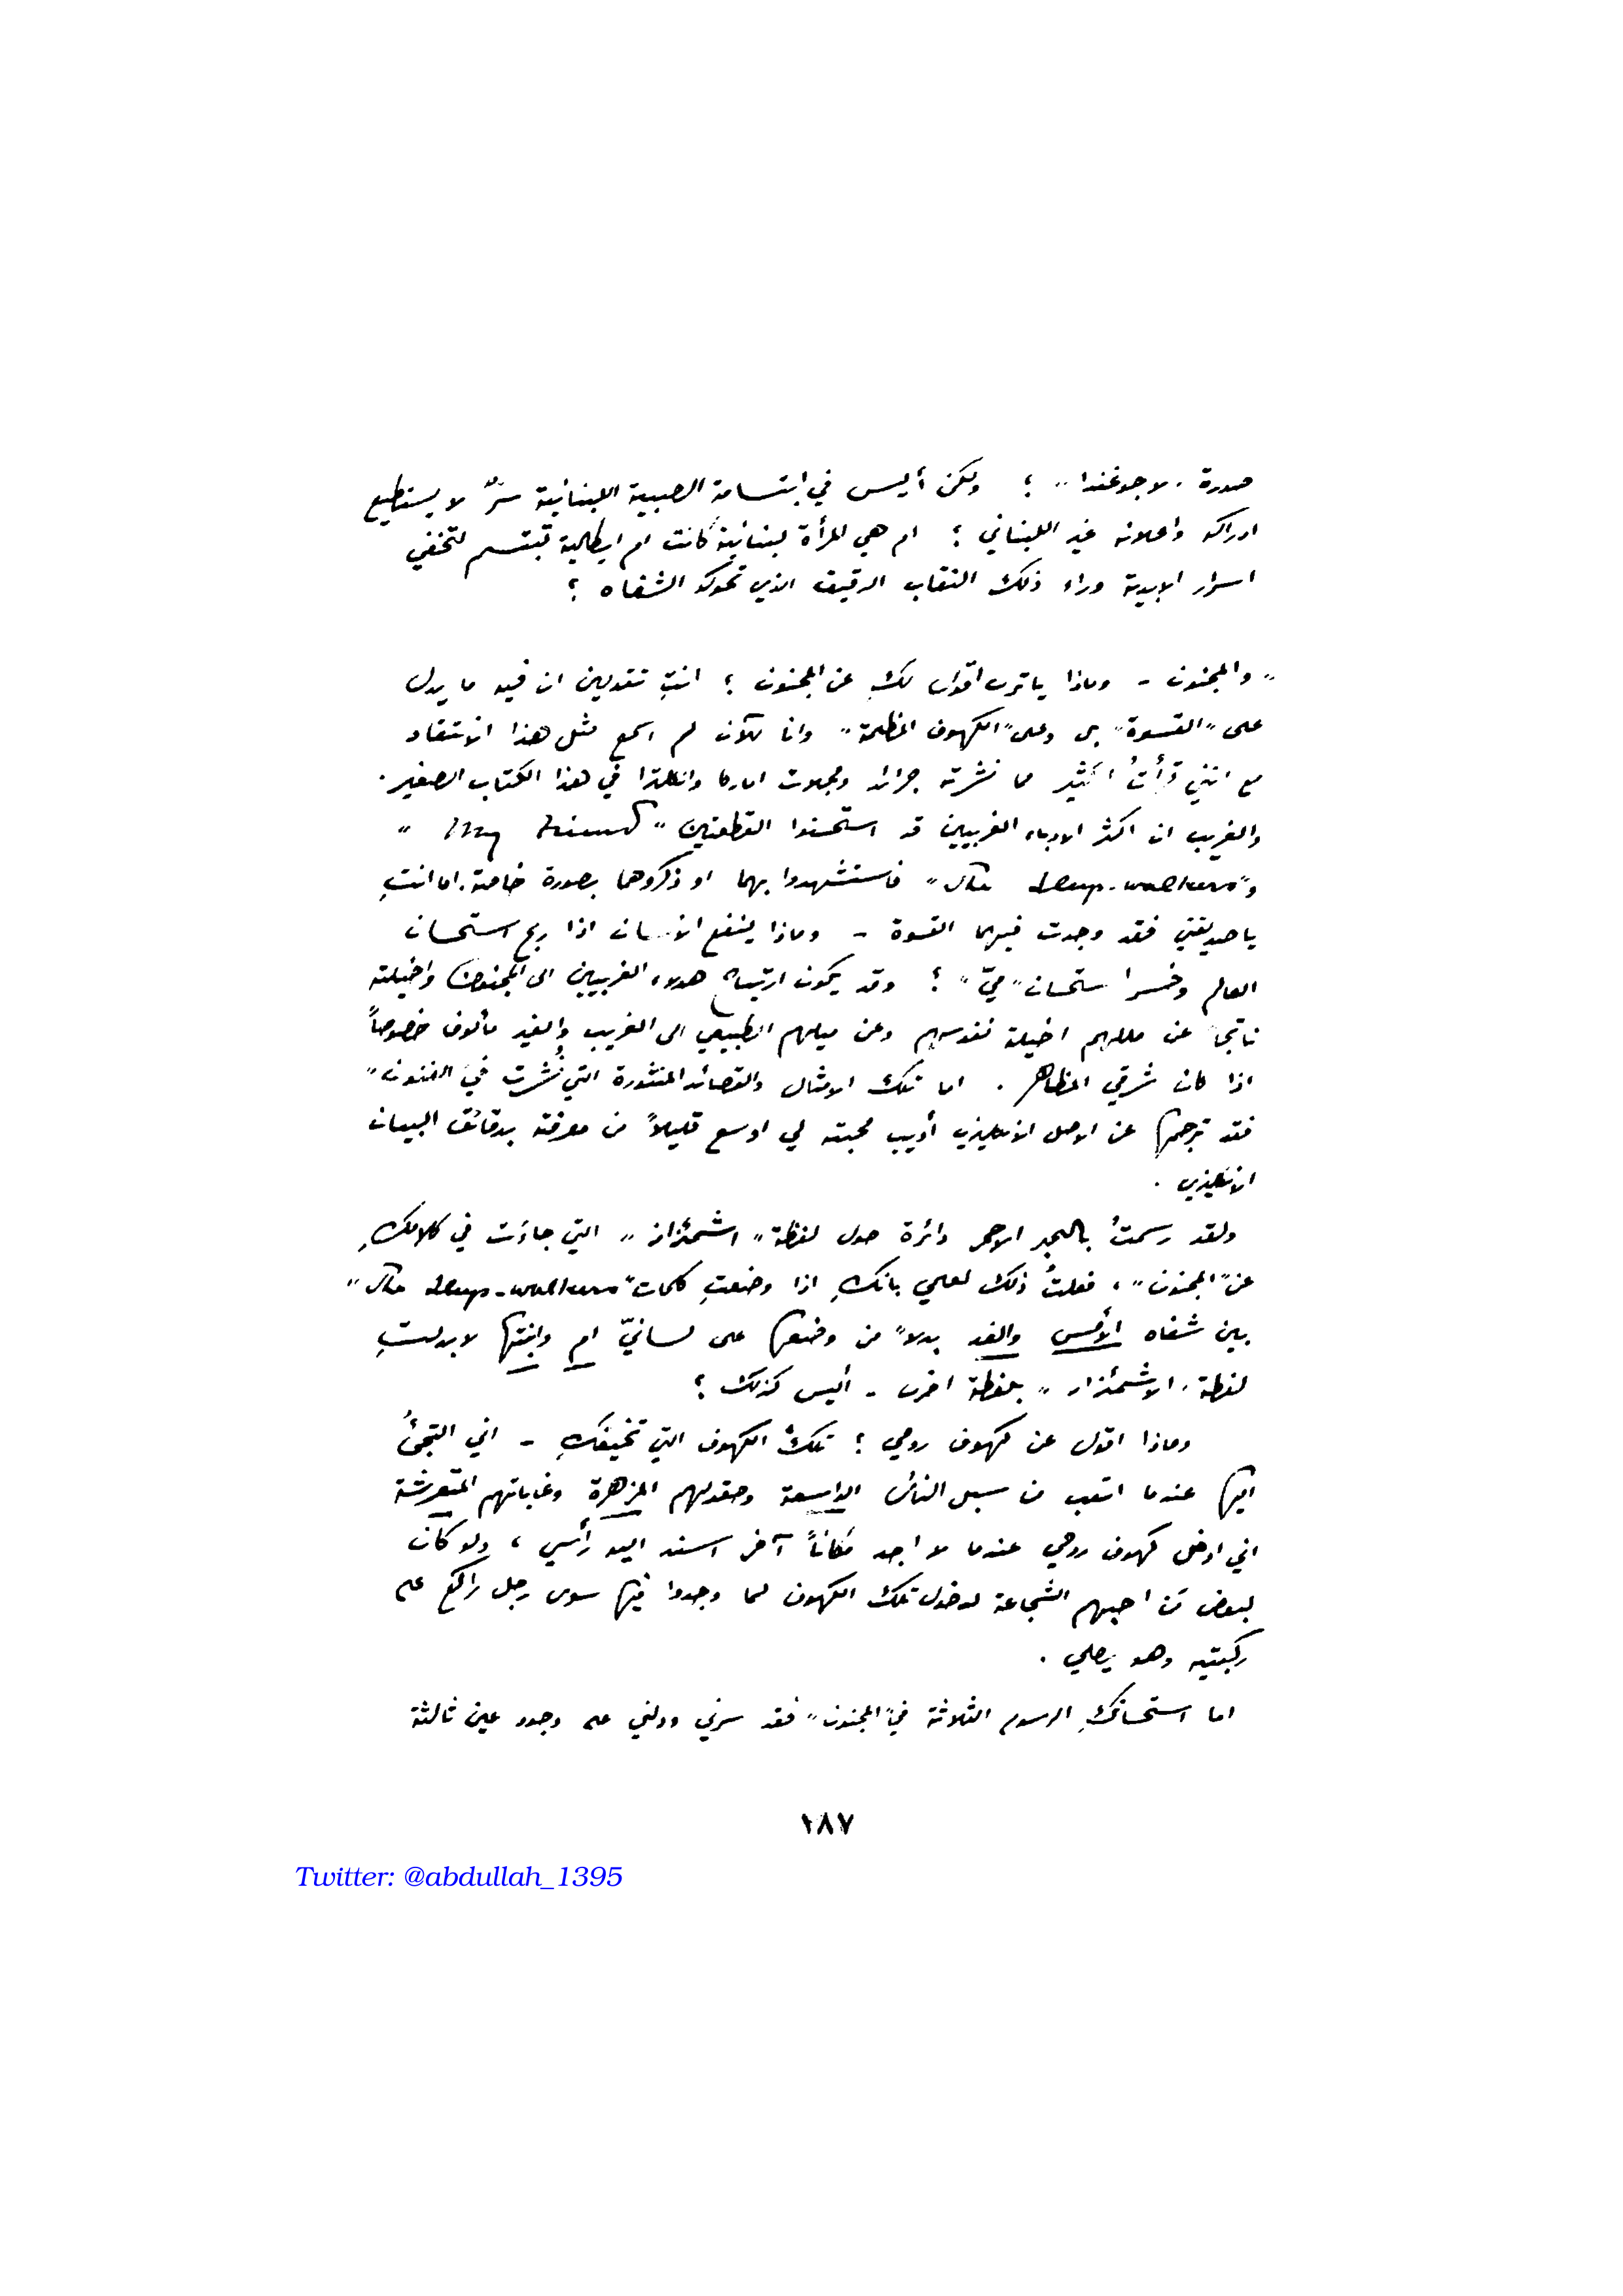 صورة "لاجوغندا" ؟ ولكن أليس في ابتسامة الصبية اللبنانية سرّ لا يستطيع
ادراكه واعلانه غير اللبناني ؟ ام هي المرأة لبنانية كانت ام ايطالية تبتسم لتخفي
اسرار الابدية وراء ذلك النقاب الرقيق الذي تحوكه الشفاه ؟
"والمجنون - وماذا يا ترى اقول لكِ عن المجنون ؟ انتِ تقولين ان فيه ما يدل
على "القسوة" بل وعلى "الكهوف المظلمة" وانا للآن لم اسمع مثل هذا الانتقاد
مع انني قرأتُ الكثير مما نشرته جرائد ومجلات اماركا وانكلترا في هذا الكتاب الصغير .
والغريب ان اكثر الادباء الغربيين قد استحسنوا القطعتين " My Friend "
و"The sleep-walkers" فاستشهدوا بهما او ذكروهما بصورة خاصة . اما انتِ
يا صديقتي فقد وجدت فيهما القسوة - وماذا ينفع الانسان اذا ربح استحسان
العالم وخسر استحسان "ميّ" ؟ وقد يكون ارتياح هولاء الغربيين الى المجنون واخيلته
ناتجاً عن مللهم اخيلة نفوسهم وعن ميلهم الطبيعي الى الغريب والغير مألوف خصوصاً
اذا كان شرقي المظاهر . اما تلك الامثال والقصائد المنثورة التي نُشرت في "الفنون"
فقد ترجمها عن الاصل الانكليزي أديب محبته لي اوسع قليلاً من معرفته بدقائق البيان
الانكليزي .
ولقد رسمتُ بالحبر الاحمر دائرة حول لفظة "اشمئزاز" التي جاءَت في كلامكِ
عن "المجنون" ، فعلتُ ذلك لعلمي بانكِ اذا وضعتِ كلمات "The sleep-walkers"
بين شفاه الأمس والغد بدلاً من وضعها على لسانيّ ام وابنتها لابدلتِ
لفظة "الاشمئزاز" بلفظة اخرى - أليس كذلك ؟
وماذا اقول عن كهوف روحي ؟ تلك الكهوف التي تخيفكِ - اني التجئُ
اليها عندما اتعب من سبل الناس الواسعة وحقولهم المزهرة وغاباتهم المتعرشة
اني ادخل كهوف روحي عندما لا اجد مكاناً آخر اسند اليه رأسي ، ولو كان
لبعض مَن احبهم الشجاعة لدخول تلك الكهوف لما وجدوا فيها سوى رجل راكع على
ركبتيه وهو يصلي .
اما استحسانكِ الرسوم الثلاثة في "المجنون" فقد سرني ودلني على وجود عين ثالثة
١٨٧
Twitter: @abdullah_1395